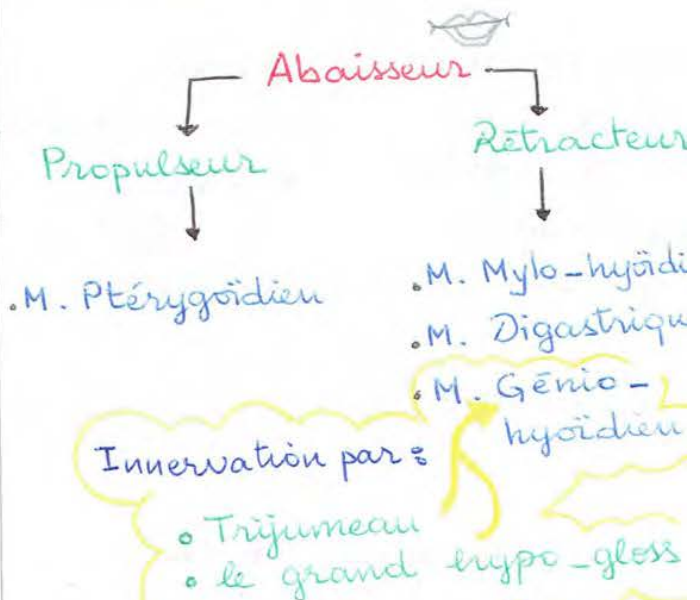 Abaisseur
Propulseur
Rétracteur
.M. Ptérygoïdien
.M. Mylo-hyoïdi
.M. Digastriqu
.M. Génio-
hyoïdien
Innervation par :
• Trijumeau
• le grand hypo-gloss